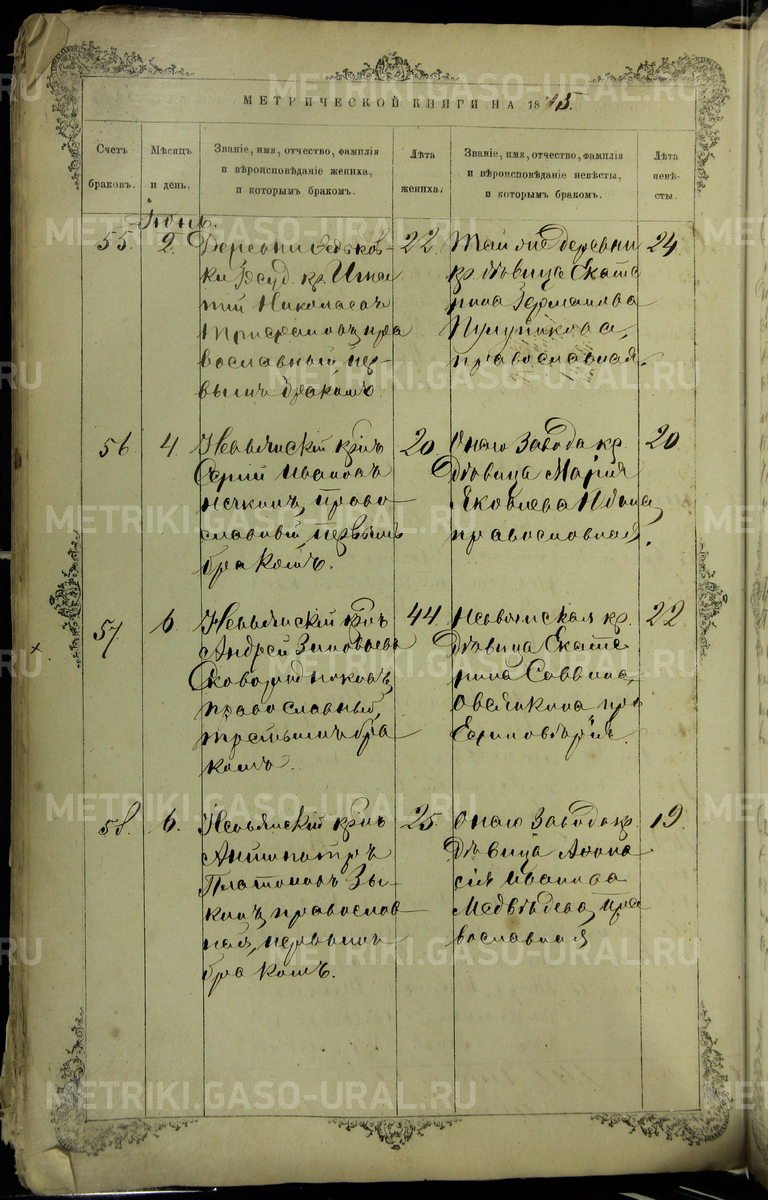 МЕТРИЧЕСКОЙ КНИГИ НА 1875.
Счетъ браковъ.
Мѣсяцъ и день.
Званіе, имя, отчество, фамилія
и вѣроисповѣданіе жениха,
и которымъ бракомъ.
Лѣта жениха.
Званіе, имя, отчество, фамилія
и вѣроисповѣданіе невѣсты,
и которымъ бракомъ.
Лѣта невѣ-
сты.
Іюнь.
55. 2.
Деревни Федьков-
ки Госуд. кр. Игна
тій Николаевъ
пра
вославный, пер-
вымъ бракомъ.
22
Той же деревни
кр. дѣвица Екате
рина Германова
православная.
24
56 4.
Невьянскій кр҃нъ
Сергій Ивановъ
право
славный первымъ
бракомъ.
20
Онаго Завода кр.
дѣвица Марія
Яковлева
православная.
20
57 6.
Невьянскій кр҃нъ
Андрей Зиновьевъ
Сковородниковъ,
православный,
третьимъ бра
комъ.
44
Невьянская кр.
дѣвица Екате
рина Саввина
Овсянкина
Единовѣріе.
22
58. 6.
Невьянскій кр҃нъ
Антипатръ
Платоновъ Зы-
кинъ, православ
ная, первымъ
бракомъ.
25.
Онаго Завода кр.
дѣвица Афана
сія Иванова
Медвѣдева, пра
вославная
19.
METRIKI.GASO-URAL.RU